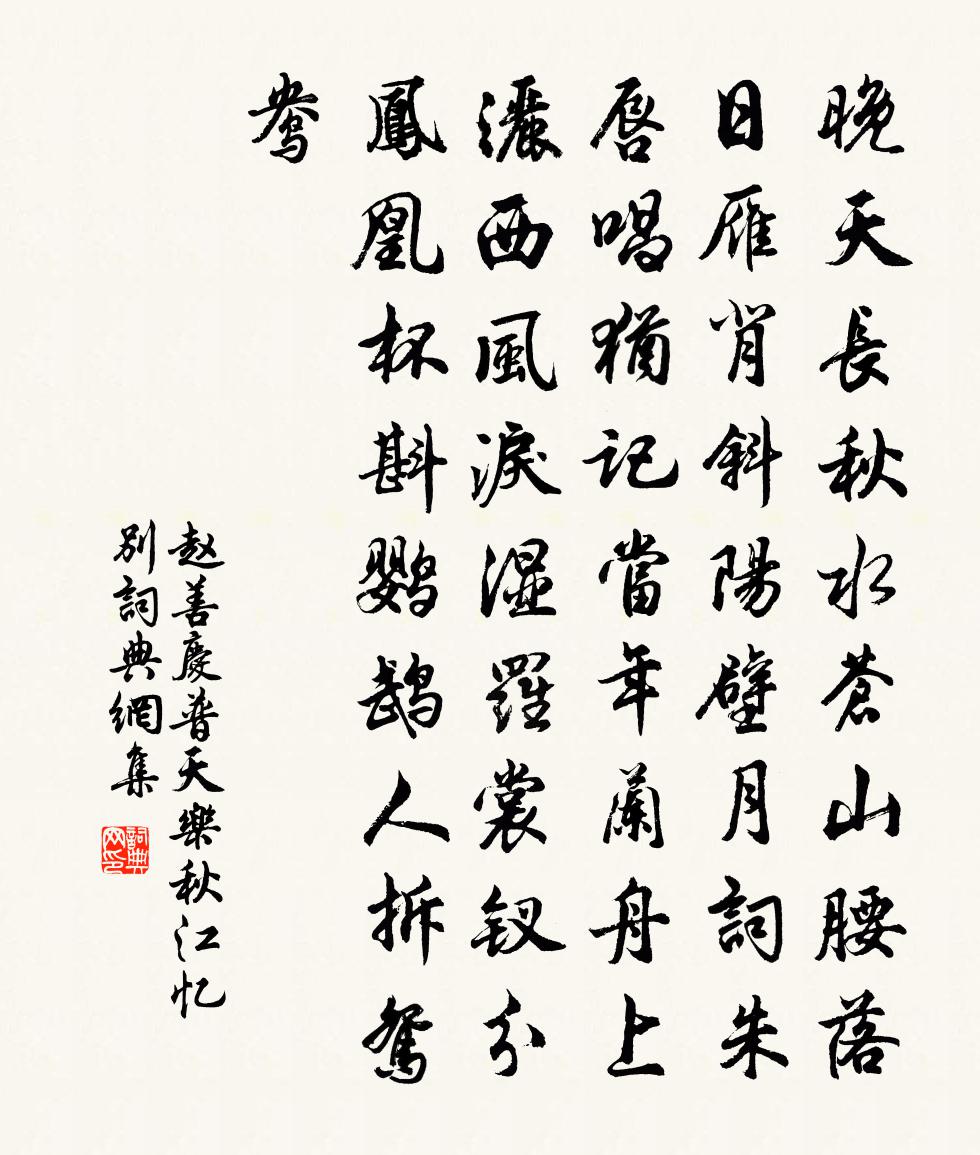 晚天長秋水蒼山腰落
日雁背斜陽璧月詞朱
唇唱猶記當年蘭舟上
灑西風淚湿羅裳釵分
鳳凰杯斟鸚鵡人拆鴛
鴦
赵善慶普天樂秋江忆
別詞典網集
詞典
网印